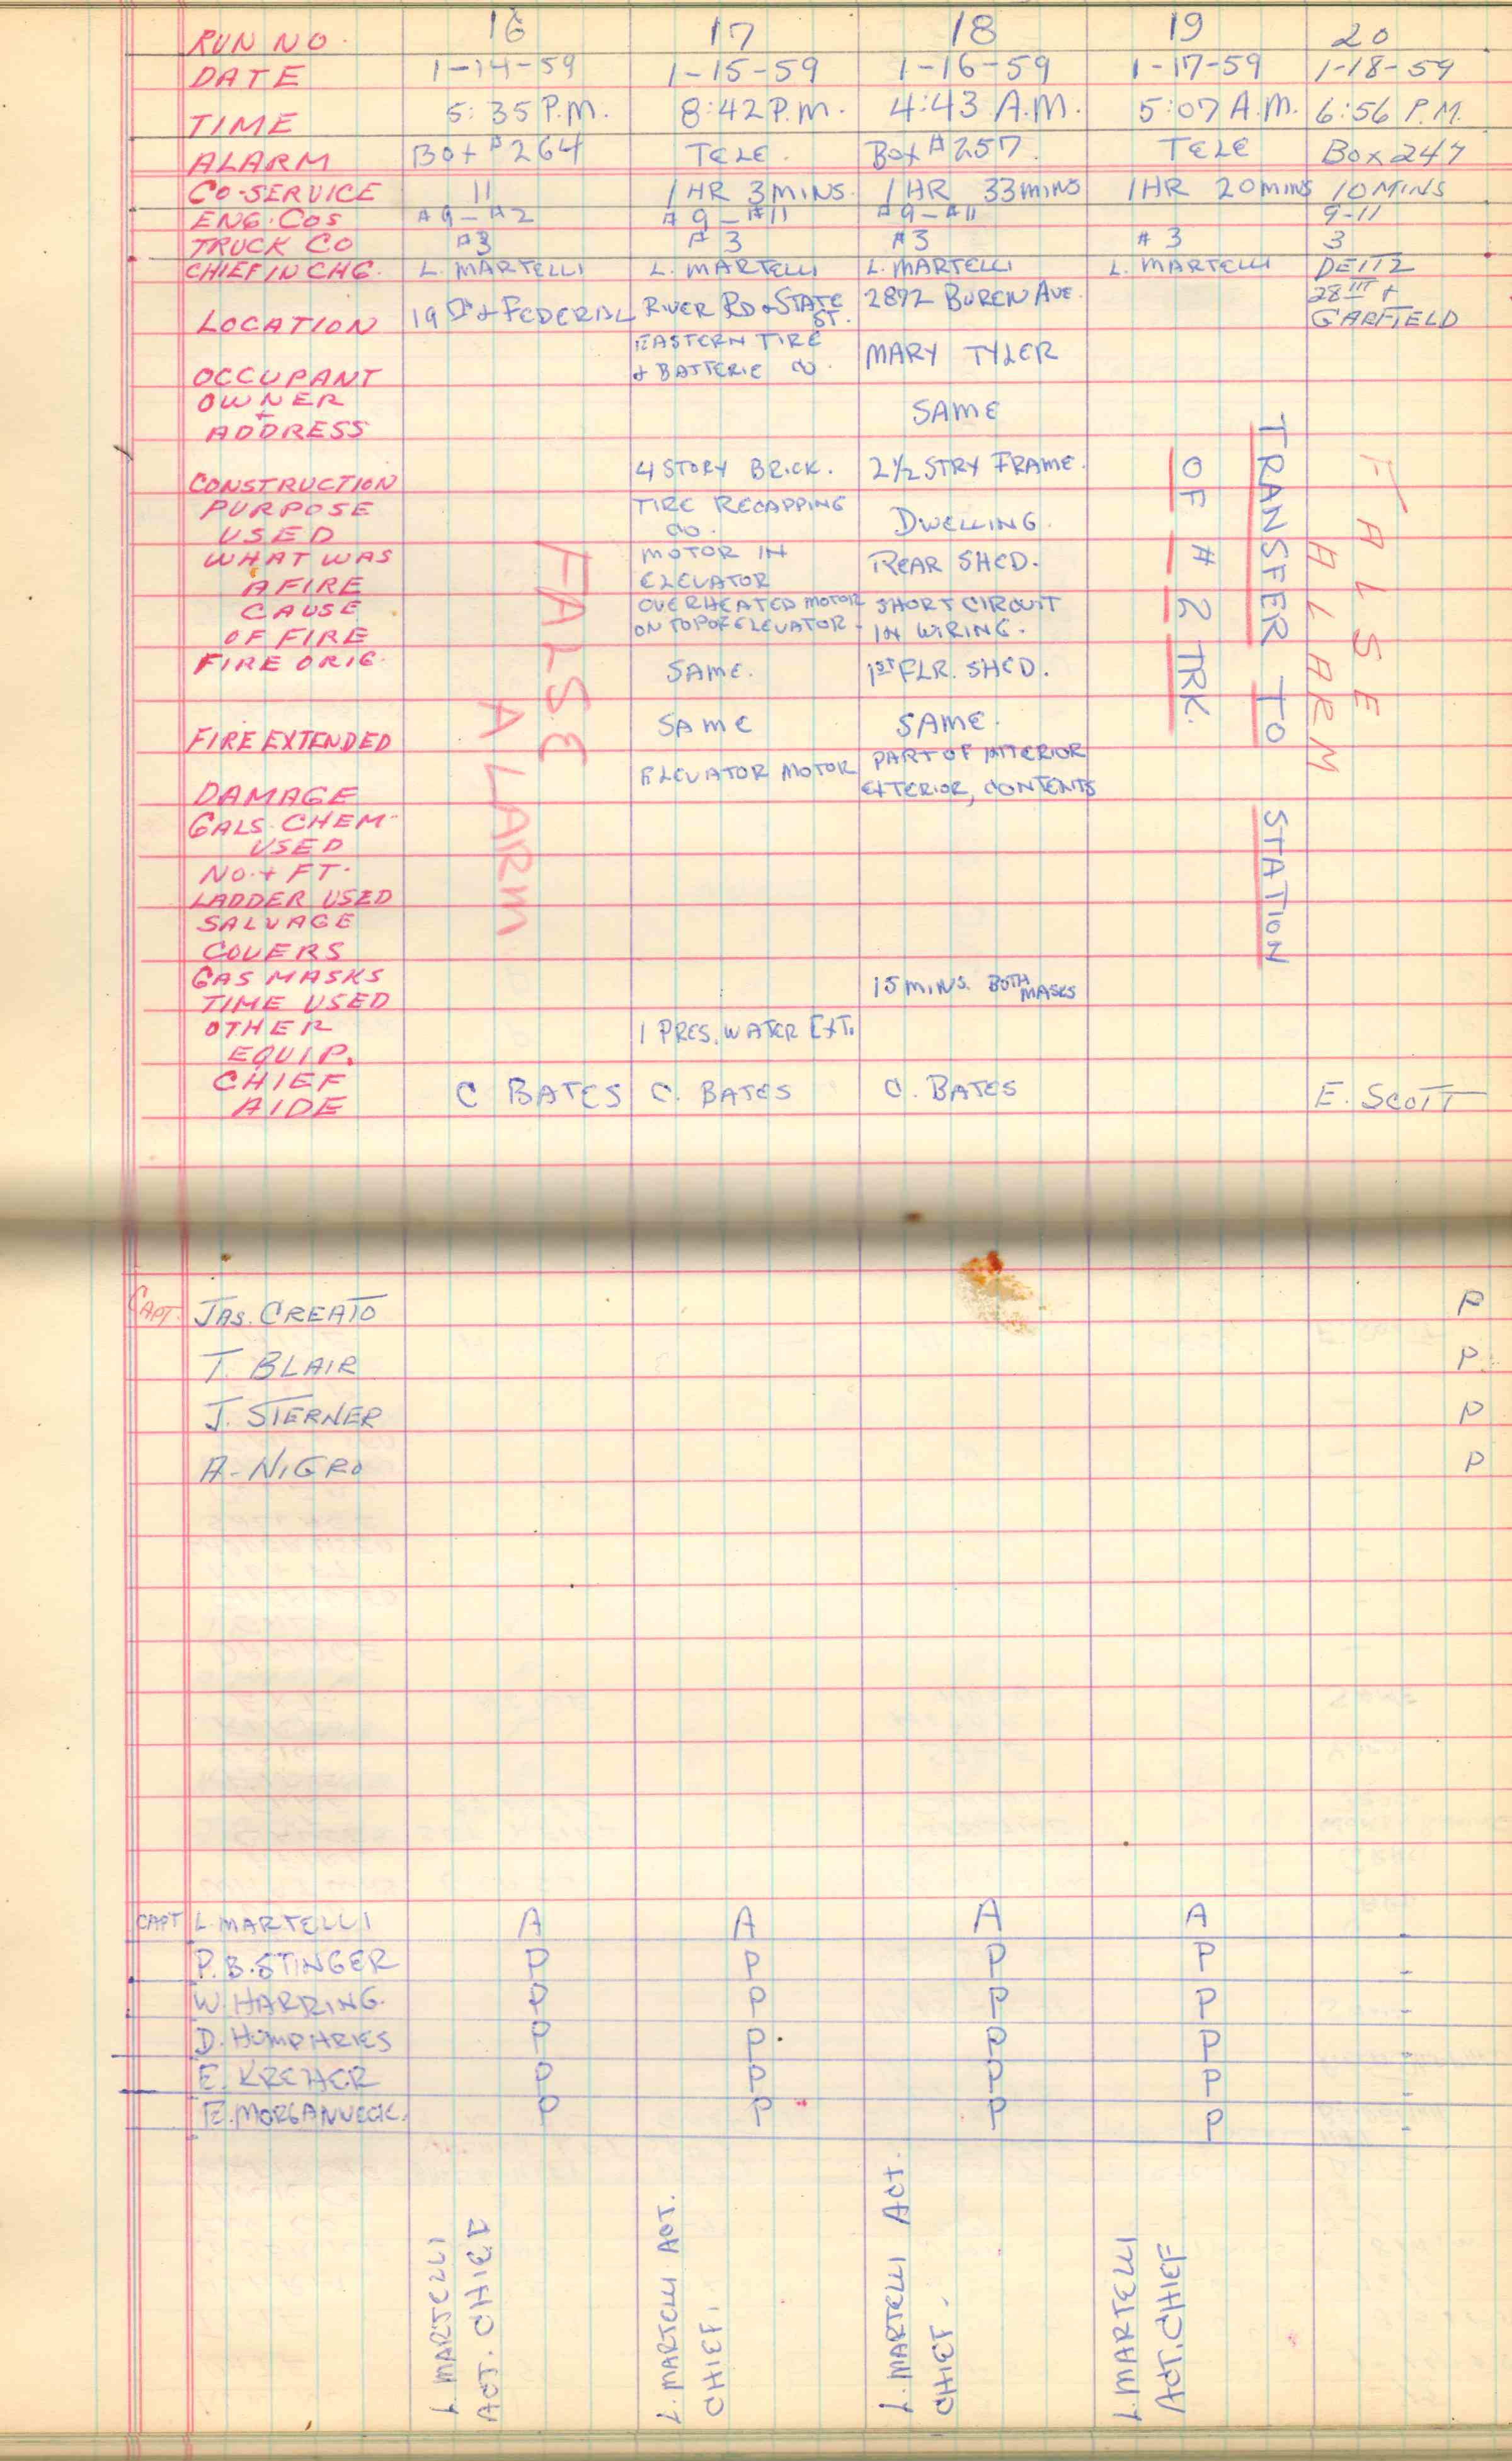 RUN NO. 16 17 18 19 20
DATE 1-14-59 1-15-59 1-16-59 1-17-59 1-18-59
TIME 5:35 P.M. 8:42 P.M. 4:43 A.M. 5:07 A.M. 6:56 P.M.
ALARM Box #264 TELE. Box #257. TELE Box 247
CO-SERVICE 11 1 HR 3 MINS. 1 HR 33 MINS 1 HR 20 MINS 10 MINS
ENG. COS #9-#2 #9-#11 #9-#11 9-11
TRUCK CO #3 #3 #3 #3 3
CHIEF IN CHG. L. MARTELLI L. MARTELLI L. MARTELLI L. MARTELLI DEITZ
LOCATION 19 & FEDERAL RIVER RD & STATE ST. 2892 BUREN AVE. 28 & GARFIELD
OCCUPANT EASTERN TIRE & BATTERIE CO. MARY TYLER
OWNER + ADDRESS SAME
CONSTRUCTION 4 STORY BRICK. 2½ STRY FRAME.
PURPOSE USED TIRE RECAPPING CO. DWELLING.
WHAT WAS AFIRE MOTOR IN ELEVATOR REAR SHED.
CAUSE OF FIRE OVERHEATED MOTOR ON TOP OF ELEVATOR. SHORT CIRCUIT IN WIRING.
FIRE ORIG. SAME. 1ST FLR. SHED.
FIRE EXTENDED SAME SAME.
DAMAGE ELEVATOR MOTOR PART OF INTERIOR EXTERIOR, CONTENTS
GALS. CHEM- USED
NO. + FT. LADDER USED
SALVAGE COVERS
GAS MASKS TIME USED 15 MINS. BOTH MASKS
OTHER EQUIP. 1 PRES. WATER EXT.
CHIEF AIDE C BATES C. BATES C. BATES E. SCOTT
FALSE ALARM
TRANSFER TO STATION
OF #2 TRK.
FALSE ALARM
CAPT. JAS. CREATO P
T. BLAIR P
J. STERNER P
A. NIGRO P
CAPT L. MARTELLI A A A A
P.B. STINGER P P P P -
W. HARRING. P P P P -
D. HUMPHRIES P P P P -
E. KREHER P P P P -
E. MORGANWECK. P P P P -
L. MARTELLI ACT. CHIEF
L. MARTELLI ACT. CHIEF.
L. MARTELLI ACT. CHIEF.
L. MARTELLI ACT. CHIEF